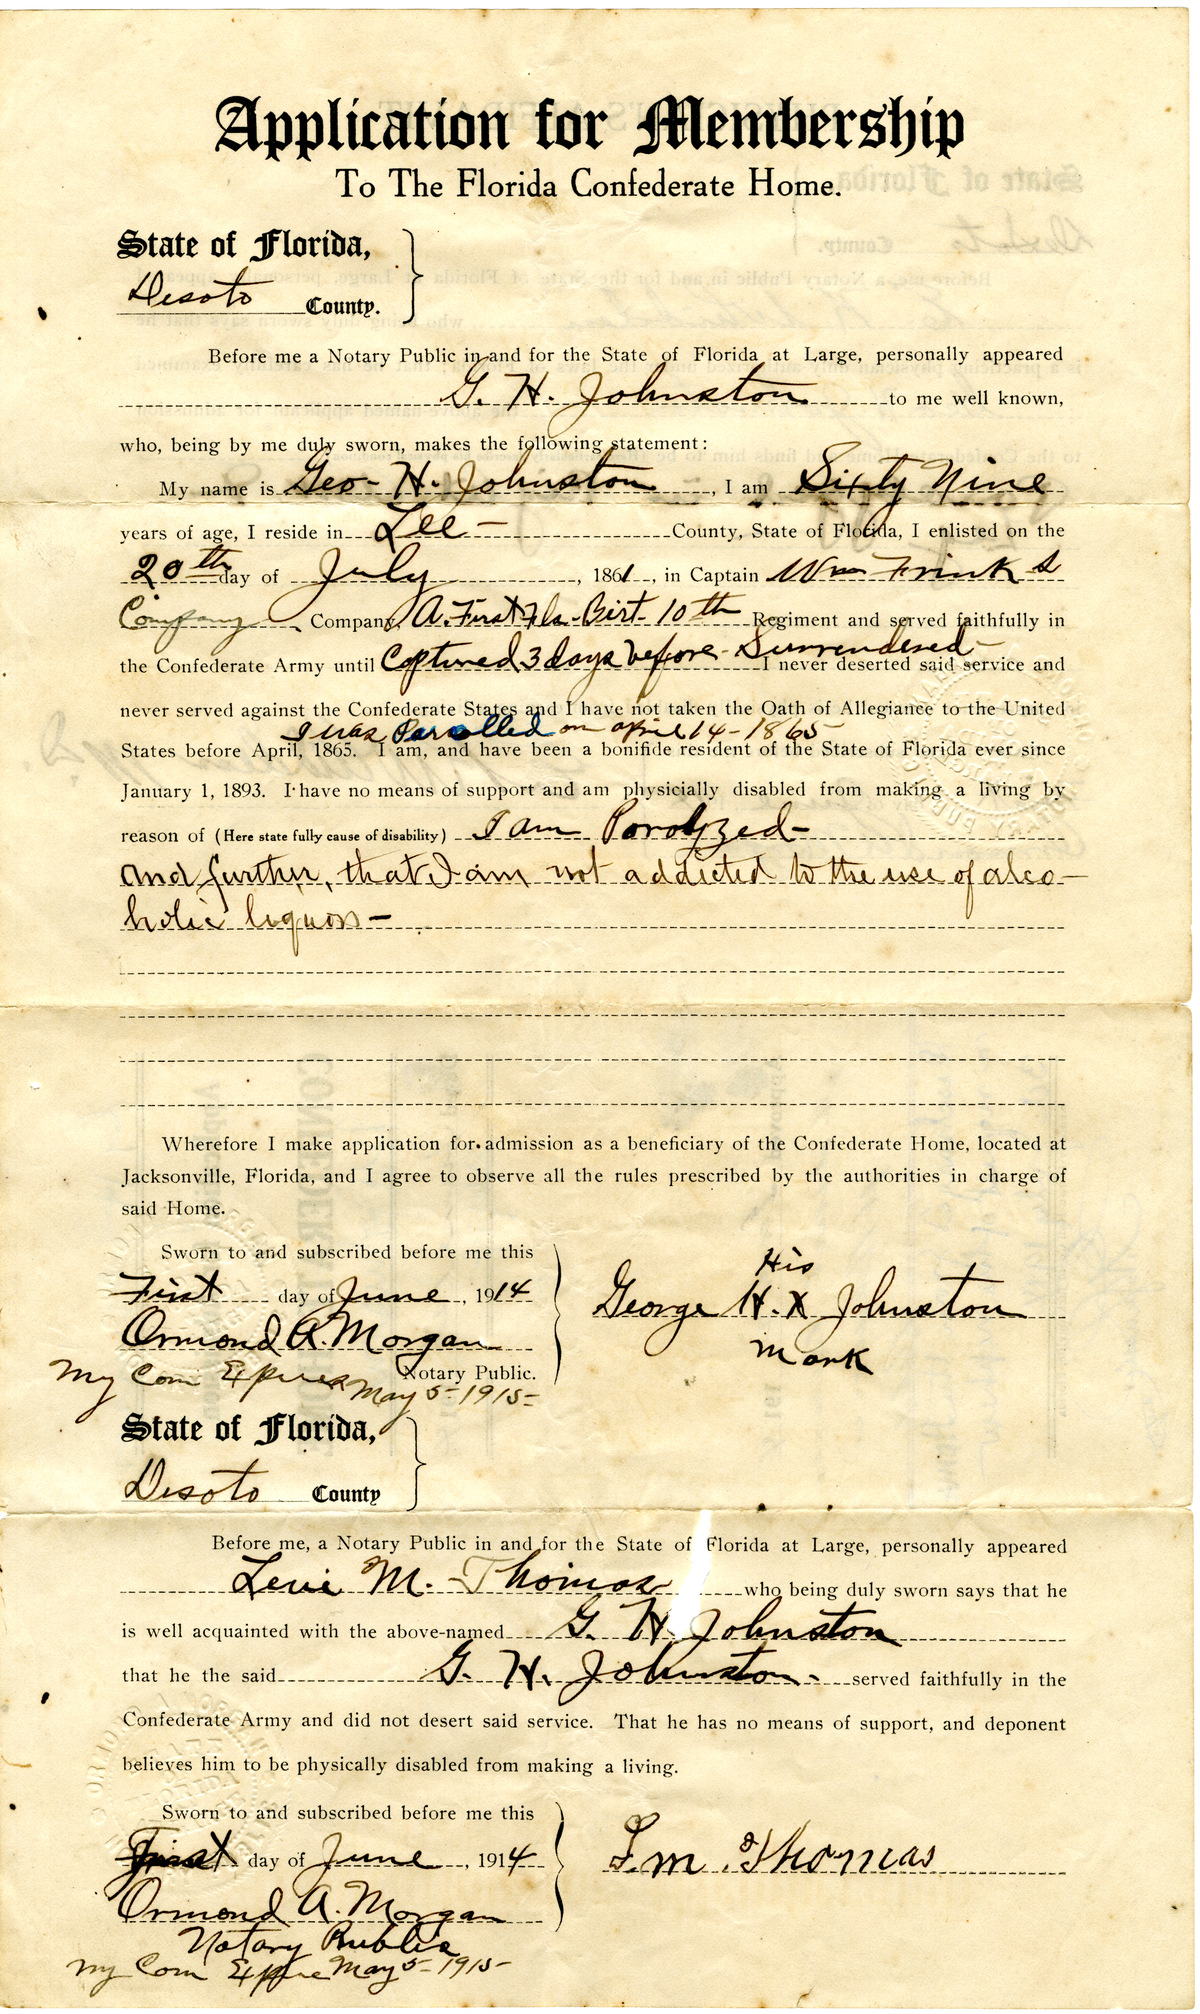 Application for Membership
To The Florida Confederate Home.
State of Florida,
Desoto County.
Before me a Notary Public in and for the State of Florida at Large, personally appeared
G. H. Johnston to me well known,
who, being by me duly sworn, makes the following statement:
My name is Geo- H. Johnston, I am Sixty Nine
years of age, I reside in Lee- County, State of Florida, I enlisted on the
20th day of July, 1861, in Captain Wm Frinks
Company Company A. First Fla- Birt- 10th Regiment and served faithfully in
the Confederate Army until Coptured 3 days before- Surrendered- I never deserted said service and
never served against the Confederate States and I have not taken the Oath of Allegiance to the United
I was Parolled on april 14-1865
States before April, 1865. I am, and have been a bonifide resident of the State of Florida ever since
January 1, 1893. I have no means of support and am physicially disabled from making a living by
reason of (Here state fully cause of disability) I am Porolyzed-
and further, that I am not addicted to the use of alco-
holic liquors-
Wherefore I make application for admission as a beneficiary of the Confederate Home, located at
Jacksonville, Florida, and I agree to observe all the rules prescribed by the authorities in charge of
said Home.
Sworn to and subscribed before me this
First day of June, 1914
Ormond A. Morgan
Notary Public.
My Com Expires May 5-1915-
His
George H. X Johnston
mark
State of Florida,
Desoto County
Before me, a Notary Public in and for the State of Florida at Large, personally appeared
Levie M. Thomas who being duly sworn says that he
is well acquainted with the above-named G. H Johnston
that he the said G. H. Johnston- served faithfully in the
Confederate Army and did not desert said service. That he has no means of support, and deponent
believes him to be physically disabled from making a living.
Sworn to and subscribed before me this
First day of June, 1914
Ormond A. Morgan
Notary Public
My Com Expire May 5-1915-
L. m. Thomas